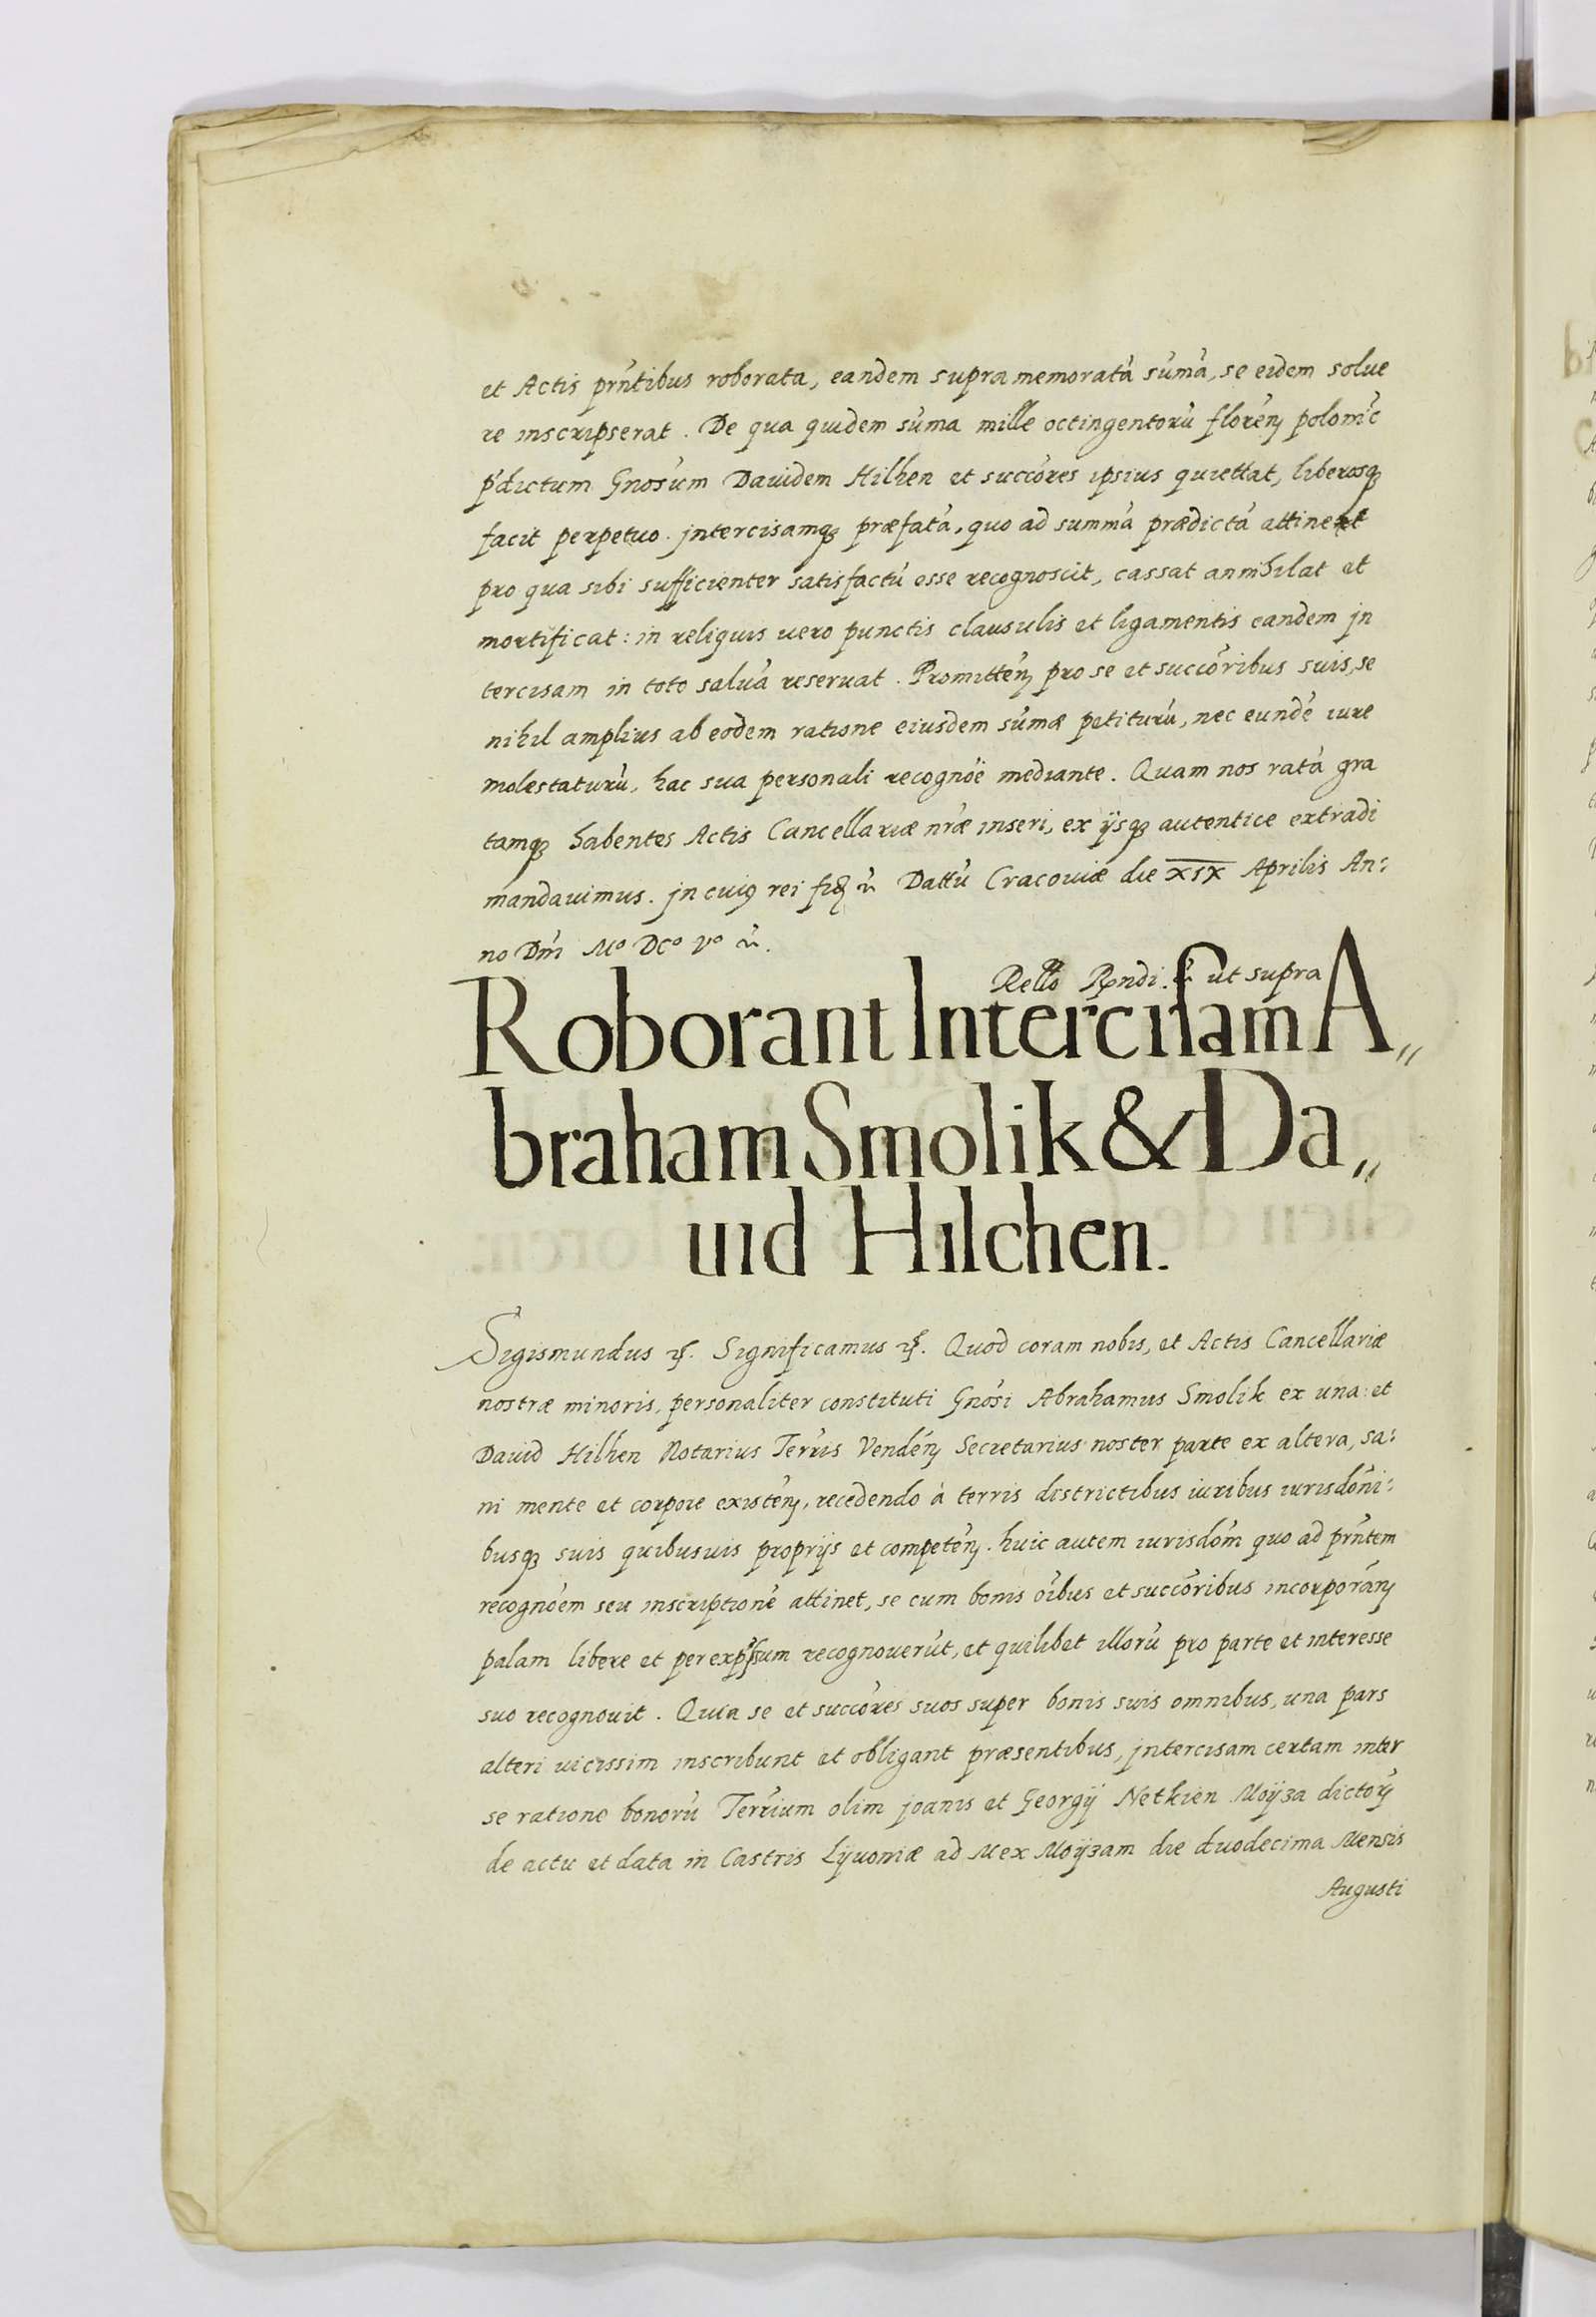 et Actis prñtibus roborata, eandem supra memoratã sum̃a, se eidem solue
re inscripserat. De qua quidem sum̃a mille octingentorũ floreñ poloniĉ
p̃dictum Gnosum Dauidem Hilhen et succõres ipsius quiettat, liberosq3
facit perpetuo. jntercisamq3 præfatã, quo ad summã prædictã attinet
pro qua sibi sufficienter satisfactũ esse recognoscit, cassat annihilat et
mortificat: in reliquis uero punctis clausulis et ligamentis eandem jn
tercisam in toto saluã reseruat. Promitteñ pro se et succõribus suis, se
nihil amplius ab eodem ratione eiusdem sum̃æ petiturũ, nec eundẽ iure
molestaturũ, hac sua personali recognõe mediante. Quam nos ratã gra
tamq3 habentes Actis Cancellariæ nr̃æ inseri, ex ijsq3 autentice extradi
mandauimus. jn cuiꝰ rei fid̃ ꝛc̃ Dattũ Cracouiæ die XIX Aprilis An:
no Dñi Mo DCo Vo ꝛc̃.
Rello Rndi. ꝛc̃ ut supra
Roborant Intercisam A„
braham Smolik & Da„
uid Hilchen.
Sigismundus ꝛc. Significamus ꝛc. Quod coram nobis, et Actis Cancellariæ
nostræ minoris, personaliter constituti Gnosi Abrahamus Smolik ex una: et
Dauid Hilhen Notarius Terr̃is Vendeñ Secretarius noster parte ex altera, sa:
ni mente et corpore existeñ, recedendo à terris districtibus iuribus iurisdõni:
busq3 suis quibusuis proprijs et competeñ. huic autem iurisdõni quo ad prñtem
recognõem seu inscriptionẽ attinet, se cum bonis oĩbus et succõribus incorporañ
palam libere et per exp̃ssum recognouerũt, et quilibet illorũ pro parte et interesse
suo recognouit. Quia se et succõres suos super bonis suis omnibus, una pars
alteri uicissim inscribunt et obligant præsentibus, jntercisam certam inter
se ratione bonorũ Terr̃ium olim joanis et Georgij Netkien Moÿza dictorꝝ
de actu et data in Castris Lÿuoniæ ad Mex Moÿzam die duodecima Mensis
Augusti